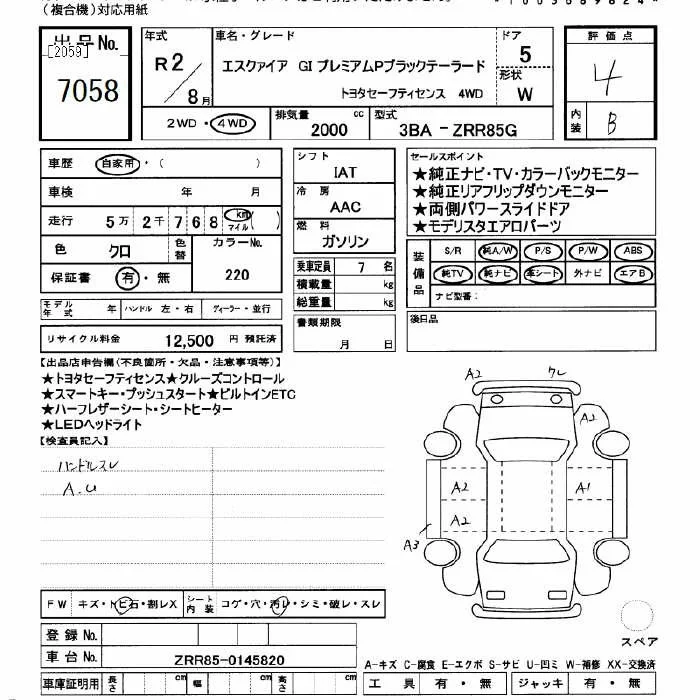 (複合機)対応用紙
出品No.
[2059]
7058
年式
R2/8月
車名・グレード
エスクァイア GIプレミアムPブラックテーラード
トヨタセーフティセンス 4WD
ドア
5
形状
W
評価点
4
内装
B
2WD・4WD
排気量
2000 cc
型式
3BA-ZRR85G
車歴 自家用・( )
車検 年 月
走行 5万2千768 km マイル ( )
色 クロ
色替
カラーNo.
220
保証書 有・無
シフト
IAT
冷房
AAC
燃料
ガソリン
乗車定員 7 名
積載量 kg
総重量 kg
セールスポイント
★純正ナビ・TV・カラーバックモニター
★純正リアフリップダウンモニター
★両側パワースライドドア
★モデリスタエアロパーツ
装備品
S/R 純A/W P/S P/W ABS
純TV 純ナビ 革シート 外ナビ エアB
ナビ型番:
モデル年式 年 ハンドル 左・右 ディーラー・並行
リサイクル料金 12,500 円 預託済
書類期限
月 日
後日品
【出品店申告欄(不良箇所・欠品・注意事項等)】
★トヨタセーフティセンス★クルーズコントロール
★スマートキー・プッシュスタート★ビルトインETC
★ハーフレザーシート・シートヒーター
★LEDヘッドライト
【検査員記入】
ハンドルスレ
A.U
A2
ワレ
A2
A2
A1
A2
A3
FW キズ・トビ石・割レX
シート内装 コゲ・穴・汚レ・シミ・破レ・スレ
スペア
登録No.
車台No. ZRR85-0145820
A-キズ C-腐食 E-エクボ S-サビ U-凹ミ W-補修 XX-交換済
車庫証明用 長さ cm 幅 cm 高さ cm
工具 有・無 ジャッキ 有・無